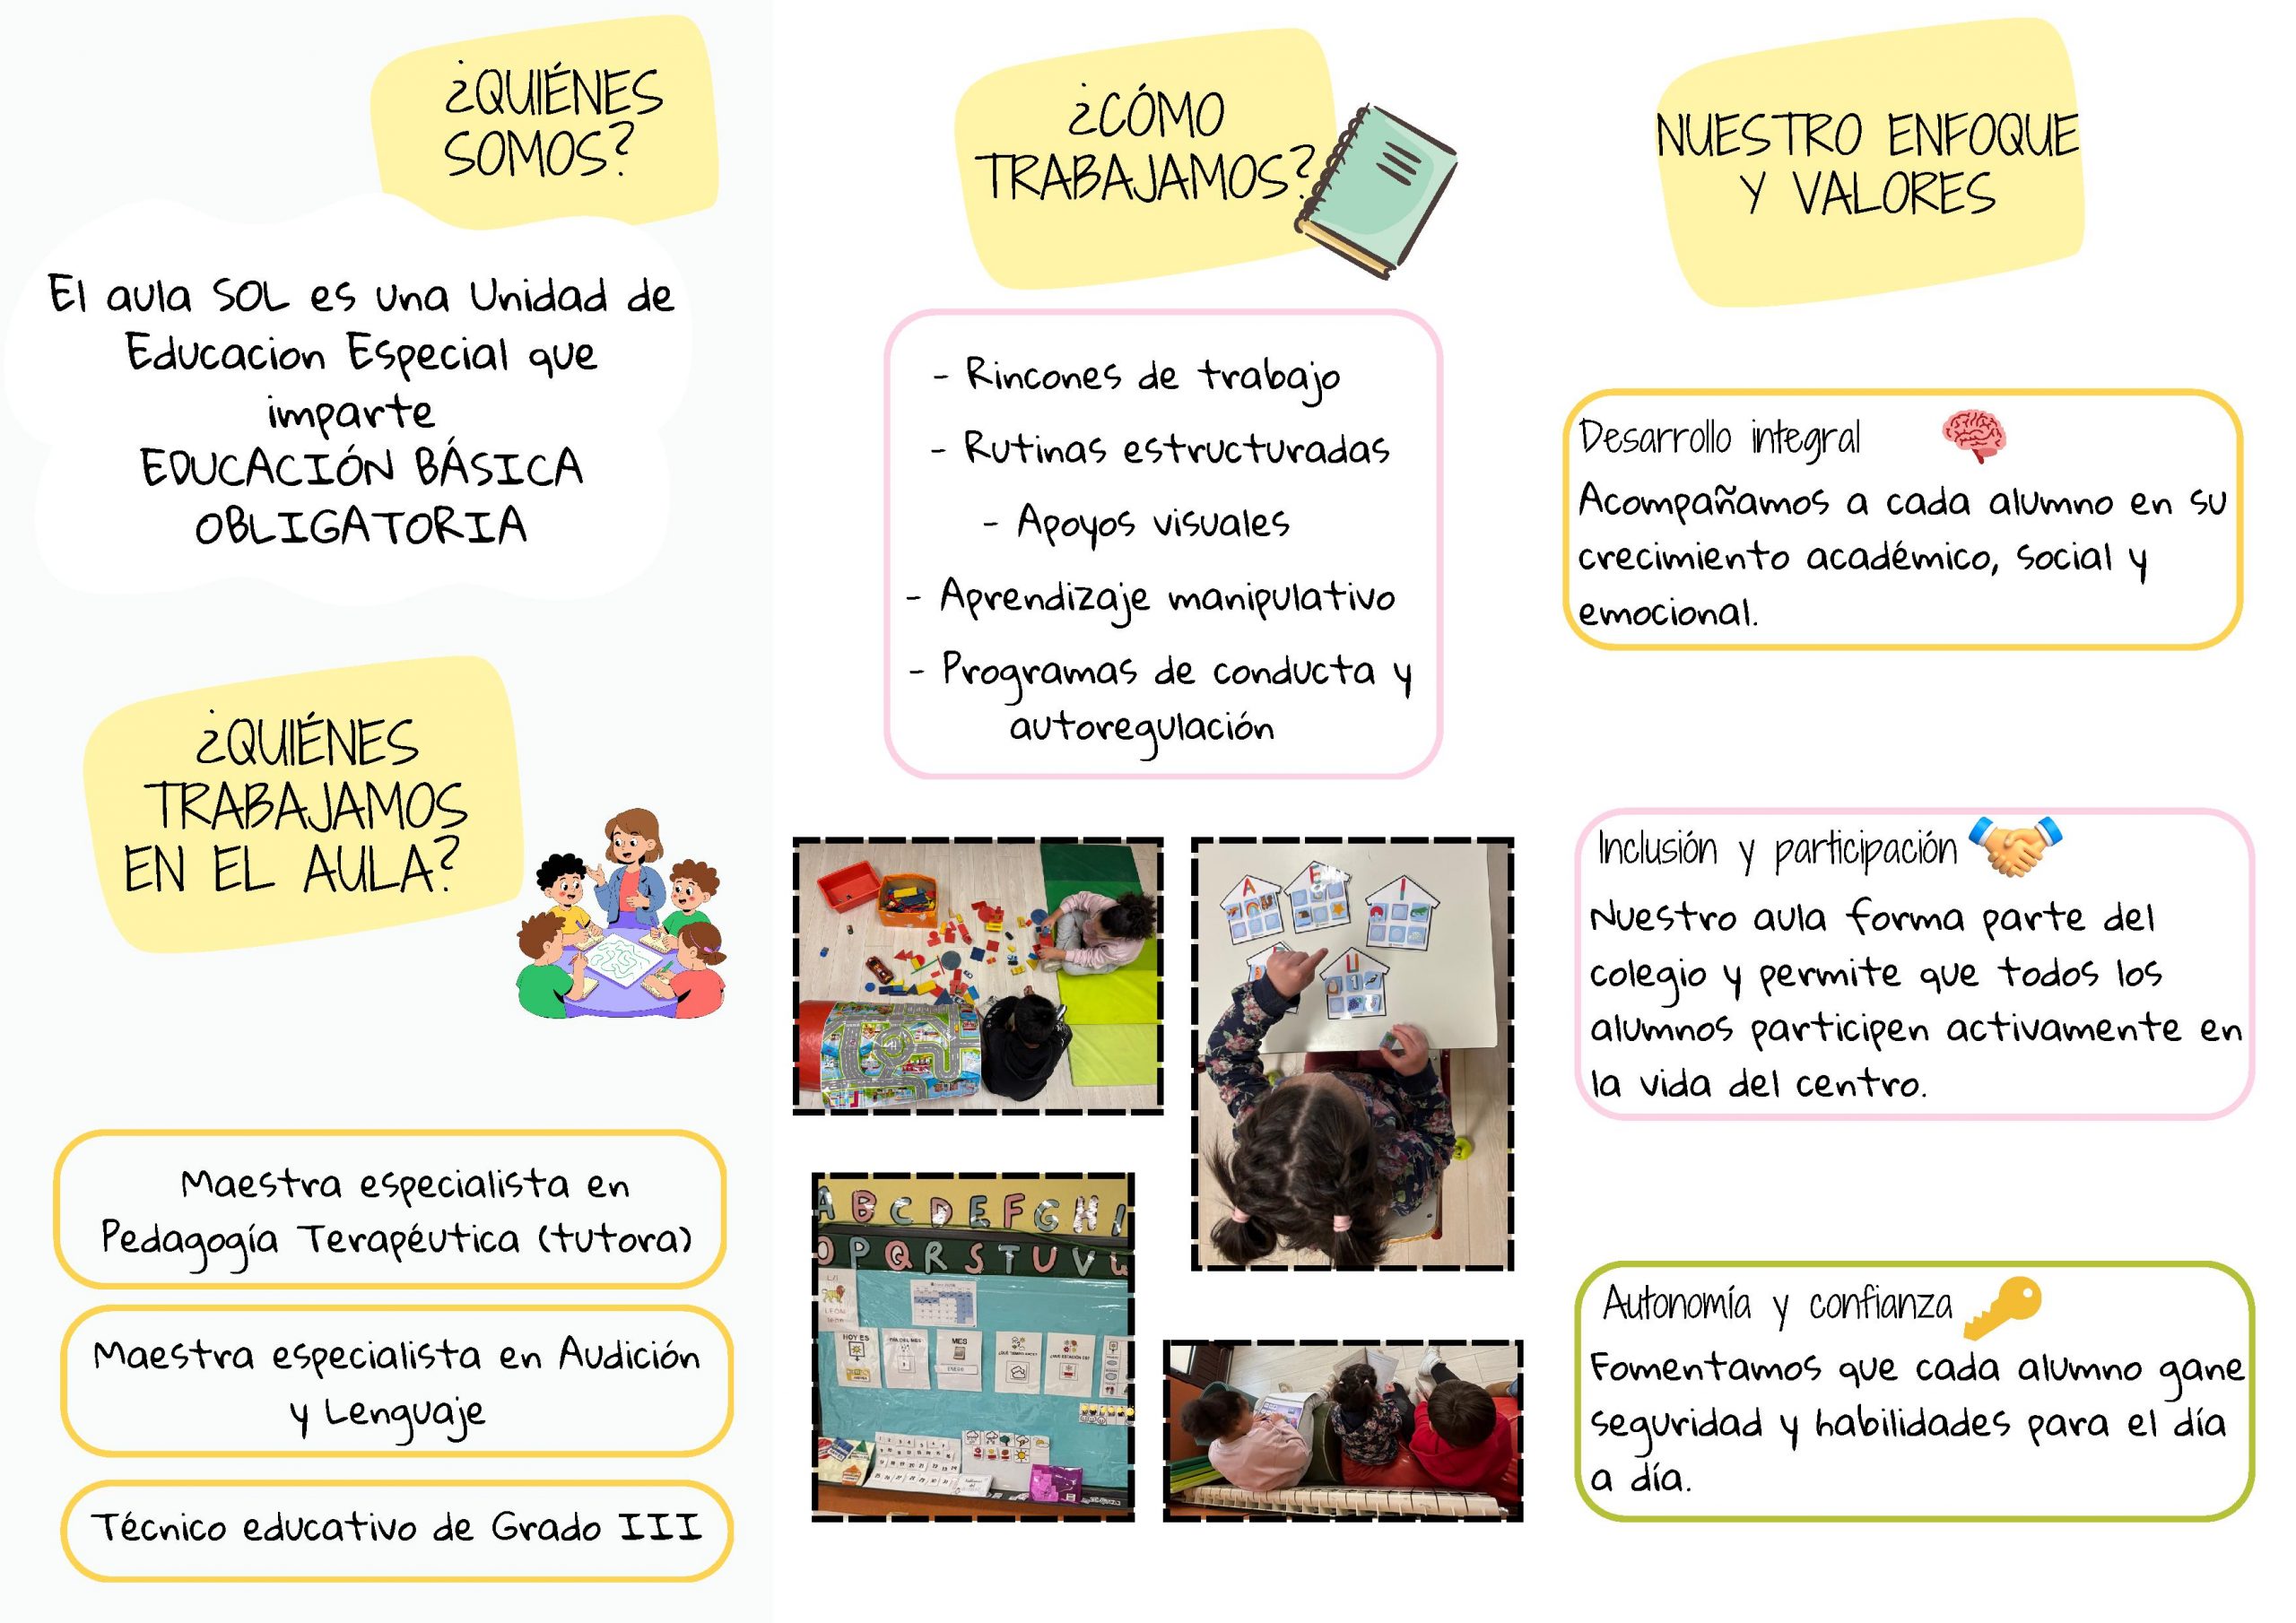 ¿QUIÉNES
SOMOS?
El aula SOL es una Unidad de
Educacion Especial que
imparte
EDUCACIÓN BÁSICA
OBLIGATORIA
¿QUIÉNES
TRABAJAMOS
EN EL AULA?
Maestra especialista en
Pedagogía Terapéutica (tutora)
Maestra especialista en Audición
y Lenguaje
Técnico educativo de Grado III
¿CÓMO
TRABAJAMOS?
- Rincones de trabajo
- Rutinas estructuradas
- Apoyos visuales
- Aprendizaje manipulativo
- Programas de conducta y
autoregulación
A E I
U
A B C D E F G H I
O P Q R S T U V W
LEÓN
HOY ES
MES
ENERO
NUESTRO ENFOQUE
Y VALORES
Desarrollo integral
Acompañamos a cada alumno en su
crecimiento académico, social y
emocional.
Inclusión y participación
Nuestro aula forma parte del
colegio y permite que todos los
alumnos participen activamente en
la vida del centro.
Autonomía y confianza
Fomentamos que cada alumno gane
seguridad y habilidades para el día
a día.